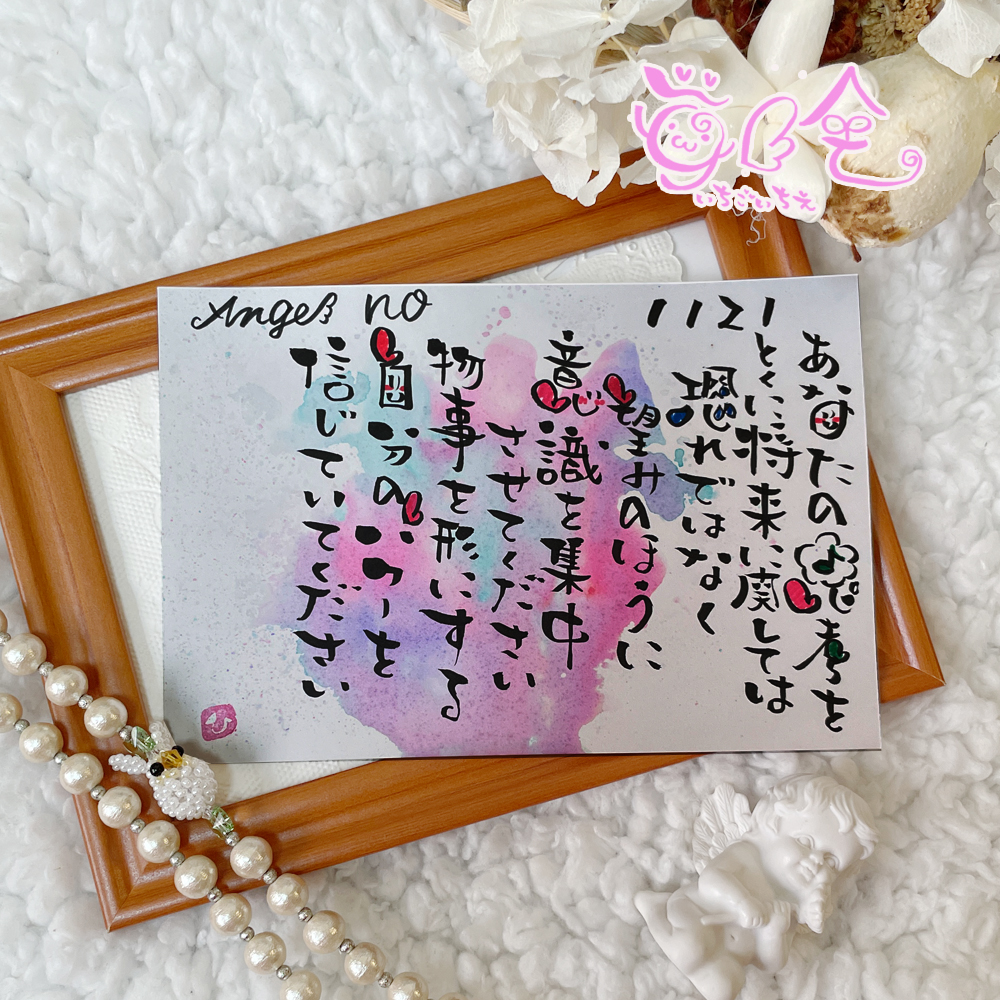 Angel no 1121
あなたの思考を
とくに将来に関しては
恐れではなく
望みのほうに
意識を集中
させてください
物事を形にする
自分のパワーを
信じていてください
いちごいちえ